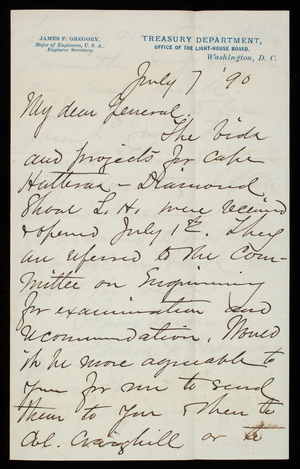 JAMES F. GREGORY,
Major of Engineers, U. S. A.,
Engineer Secretary.
TREASURY DEPARTMENT,
OFFICE OF THE LIGHT-HOUSE BOARD.
Washington, D. C.
July 7 '90
My dear General,
The bids
and projects for Cape
Hatteras - Diamond
Shoal L. H. were received
& opened July 1st. They
are referred to the Com-
mittee on Engineering
for examination and
recommendation. Would
it be more agreeable to
you for me to send
them to you & then to
Col. Craighill or